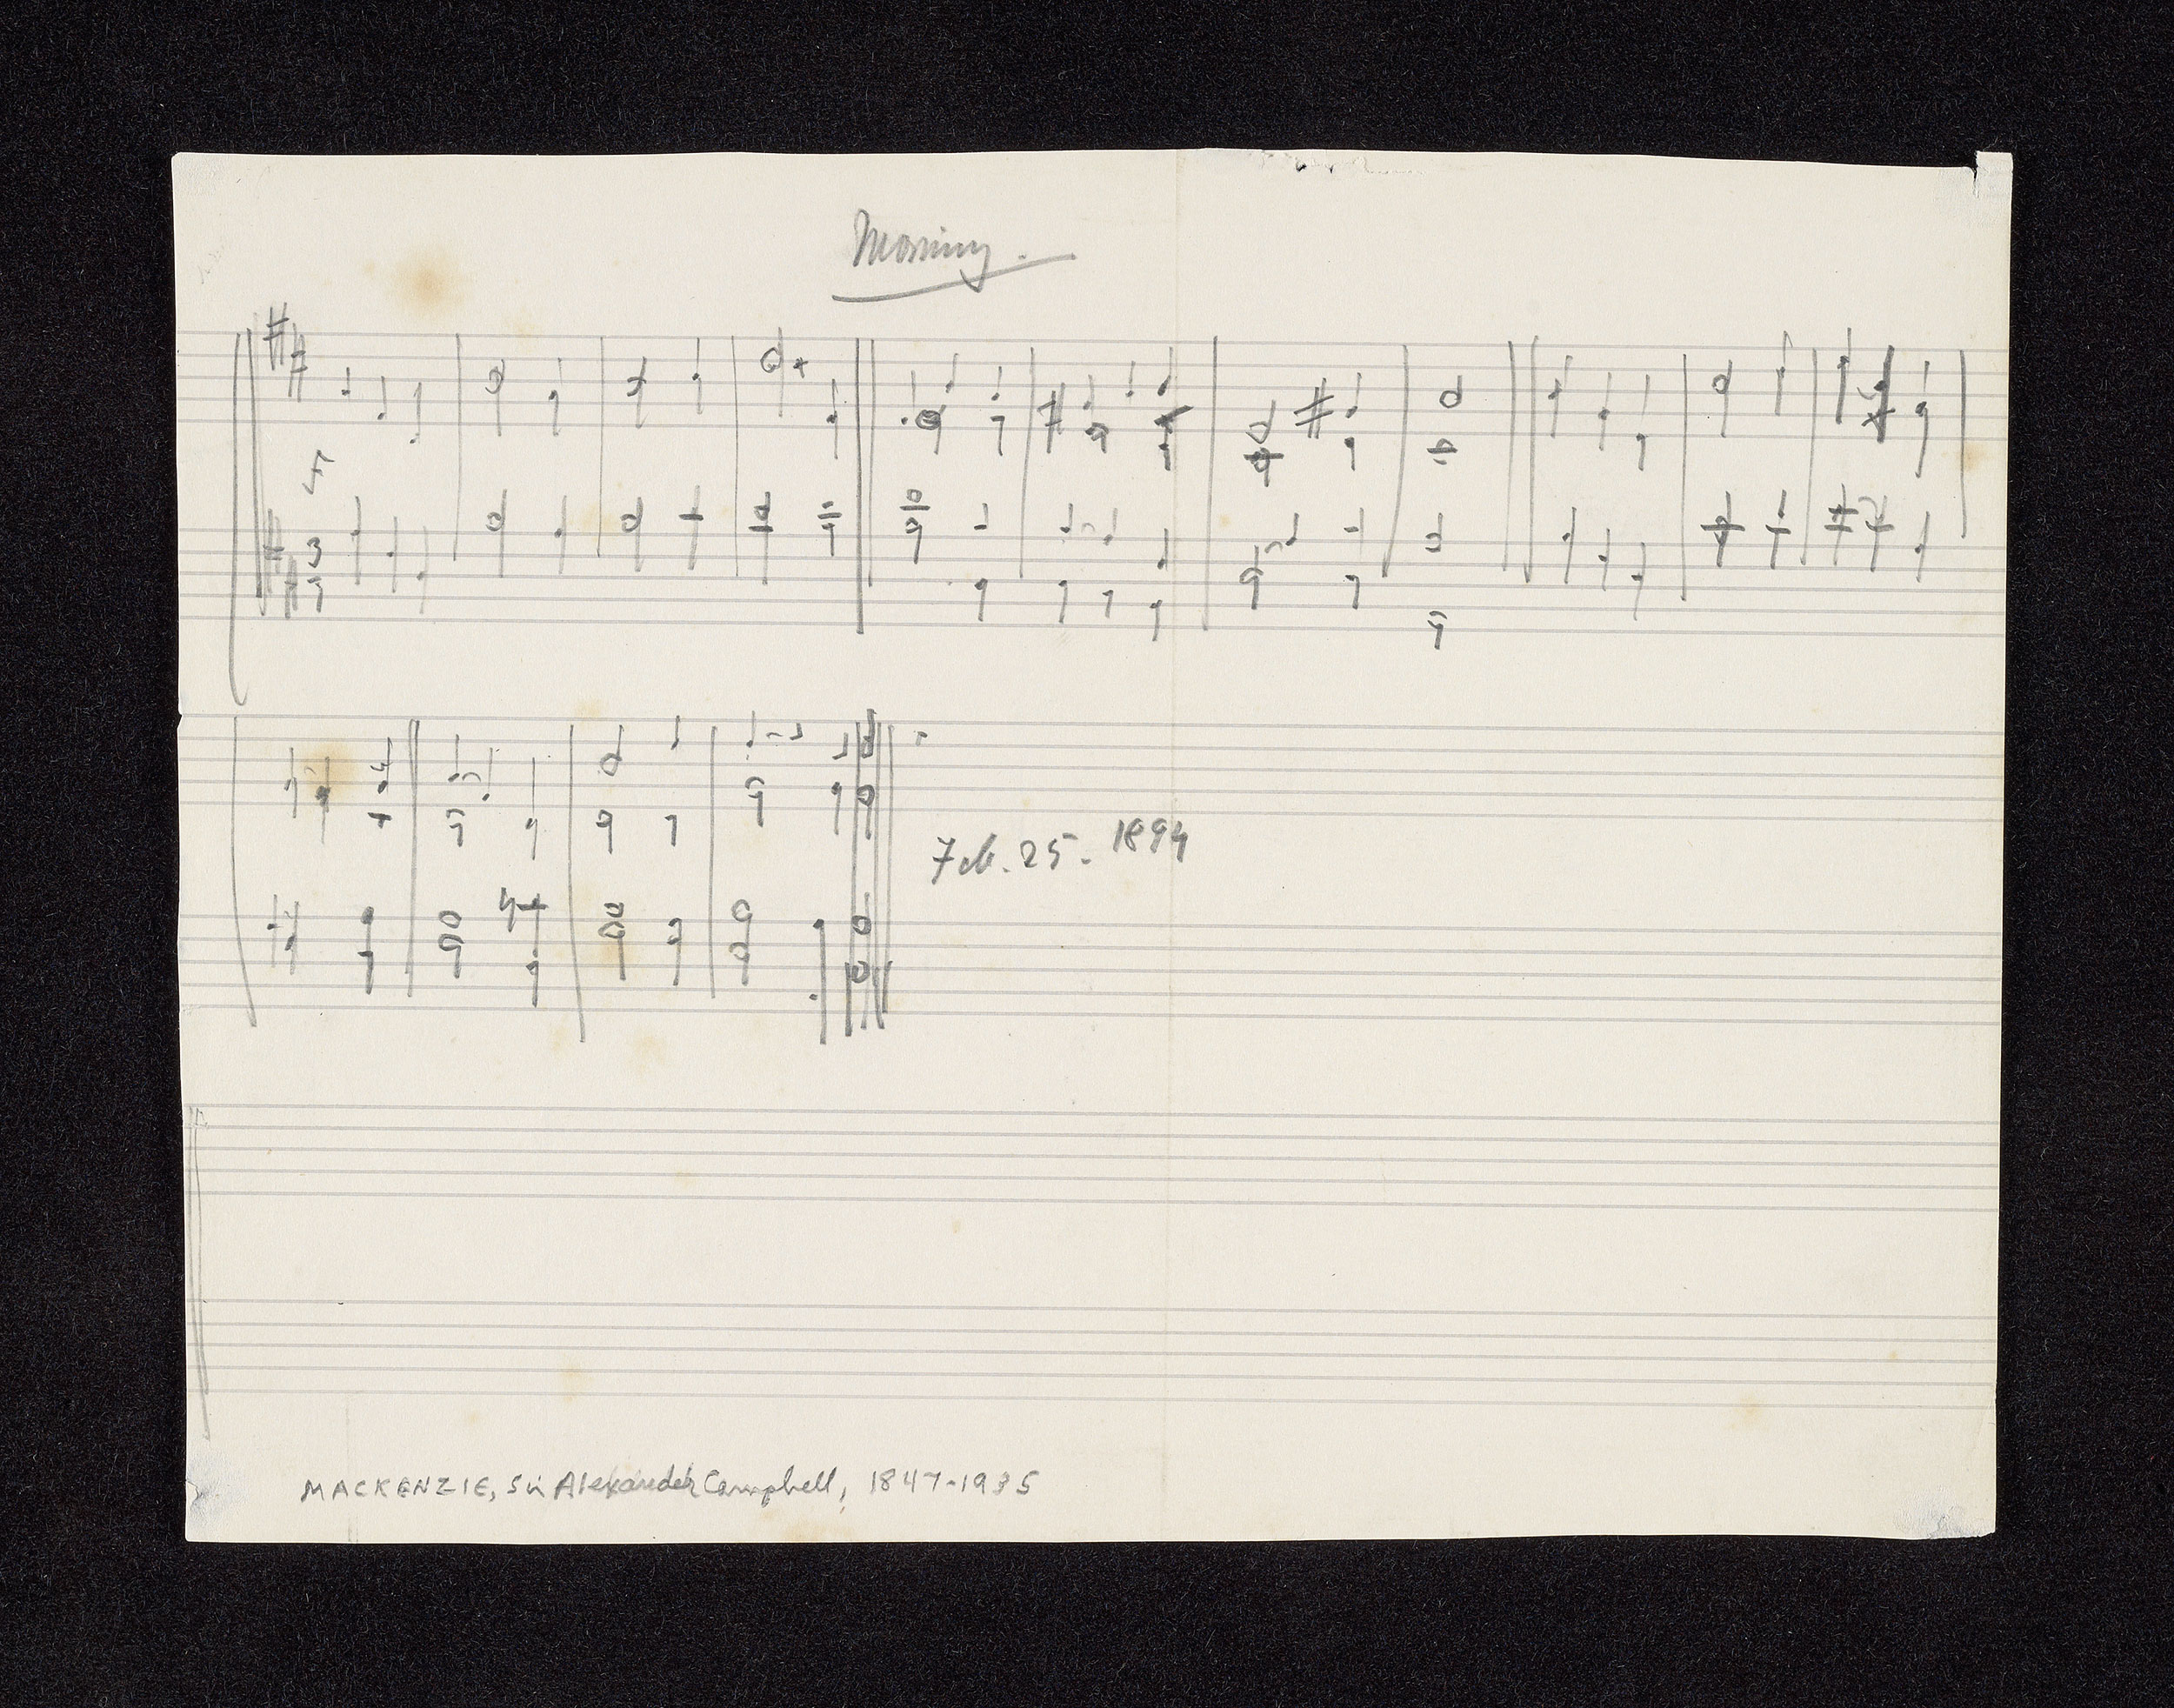 Morning.
Feb. 25. 1894
MACKENZIE, Sir Alexander Campbell, 1847-1935